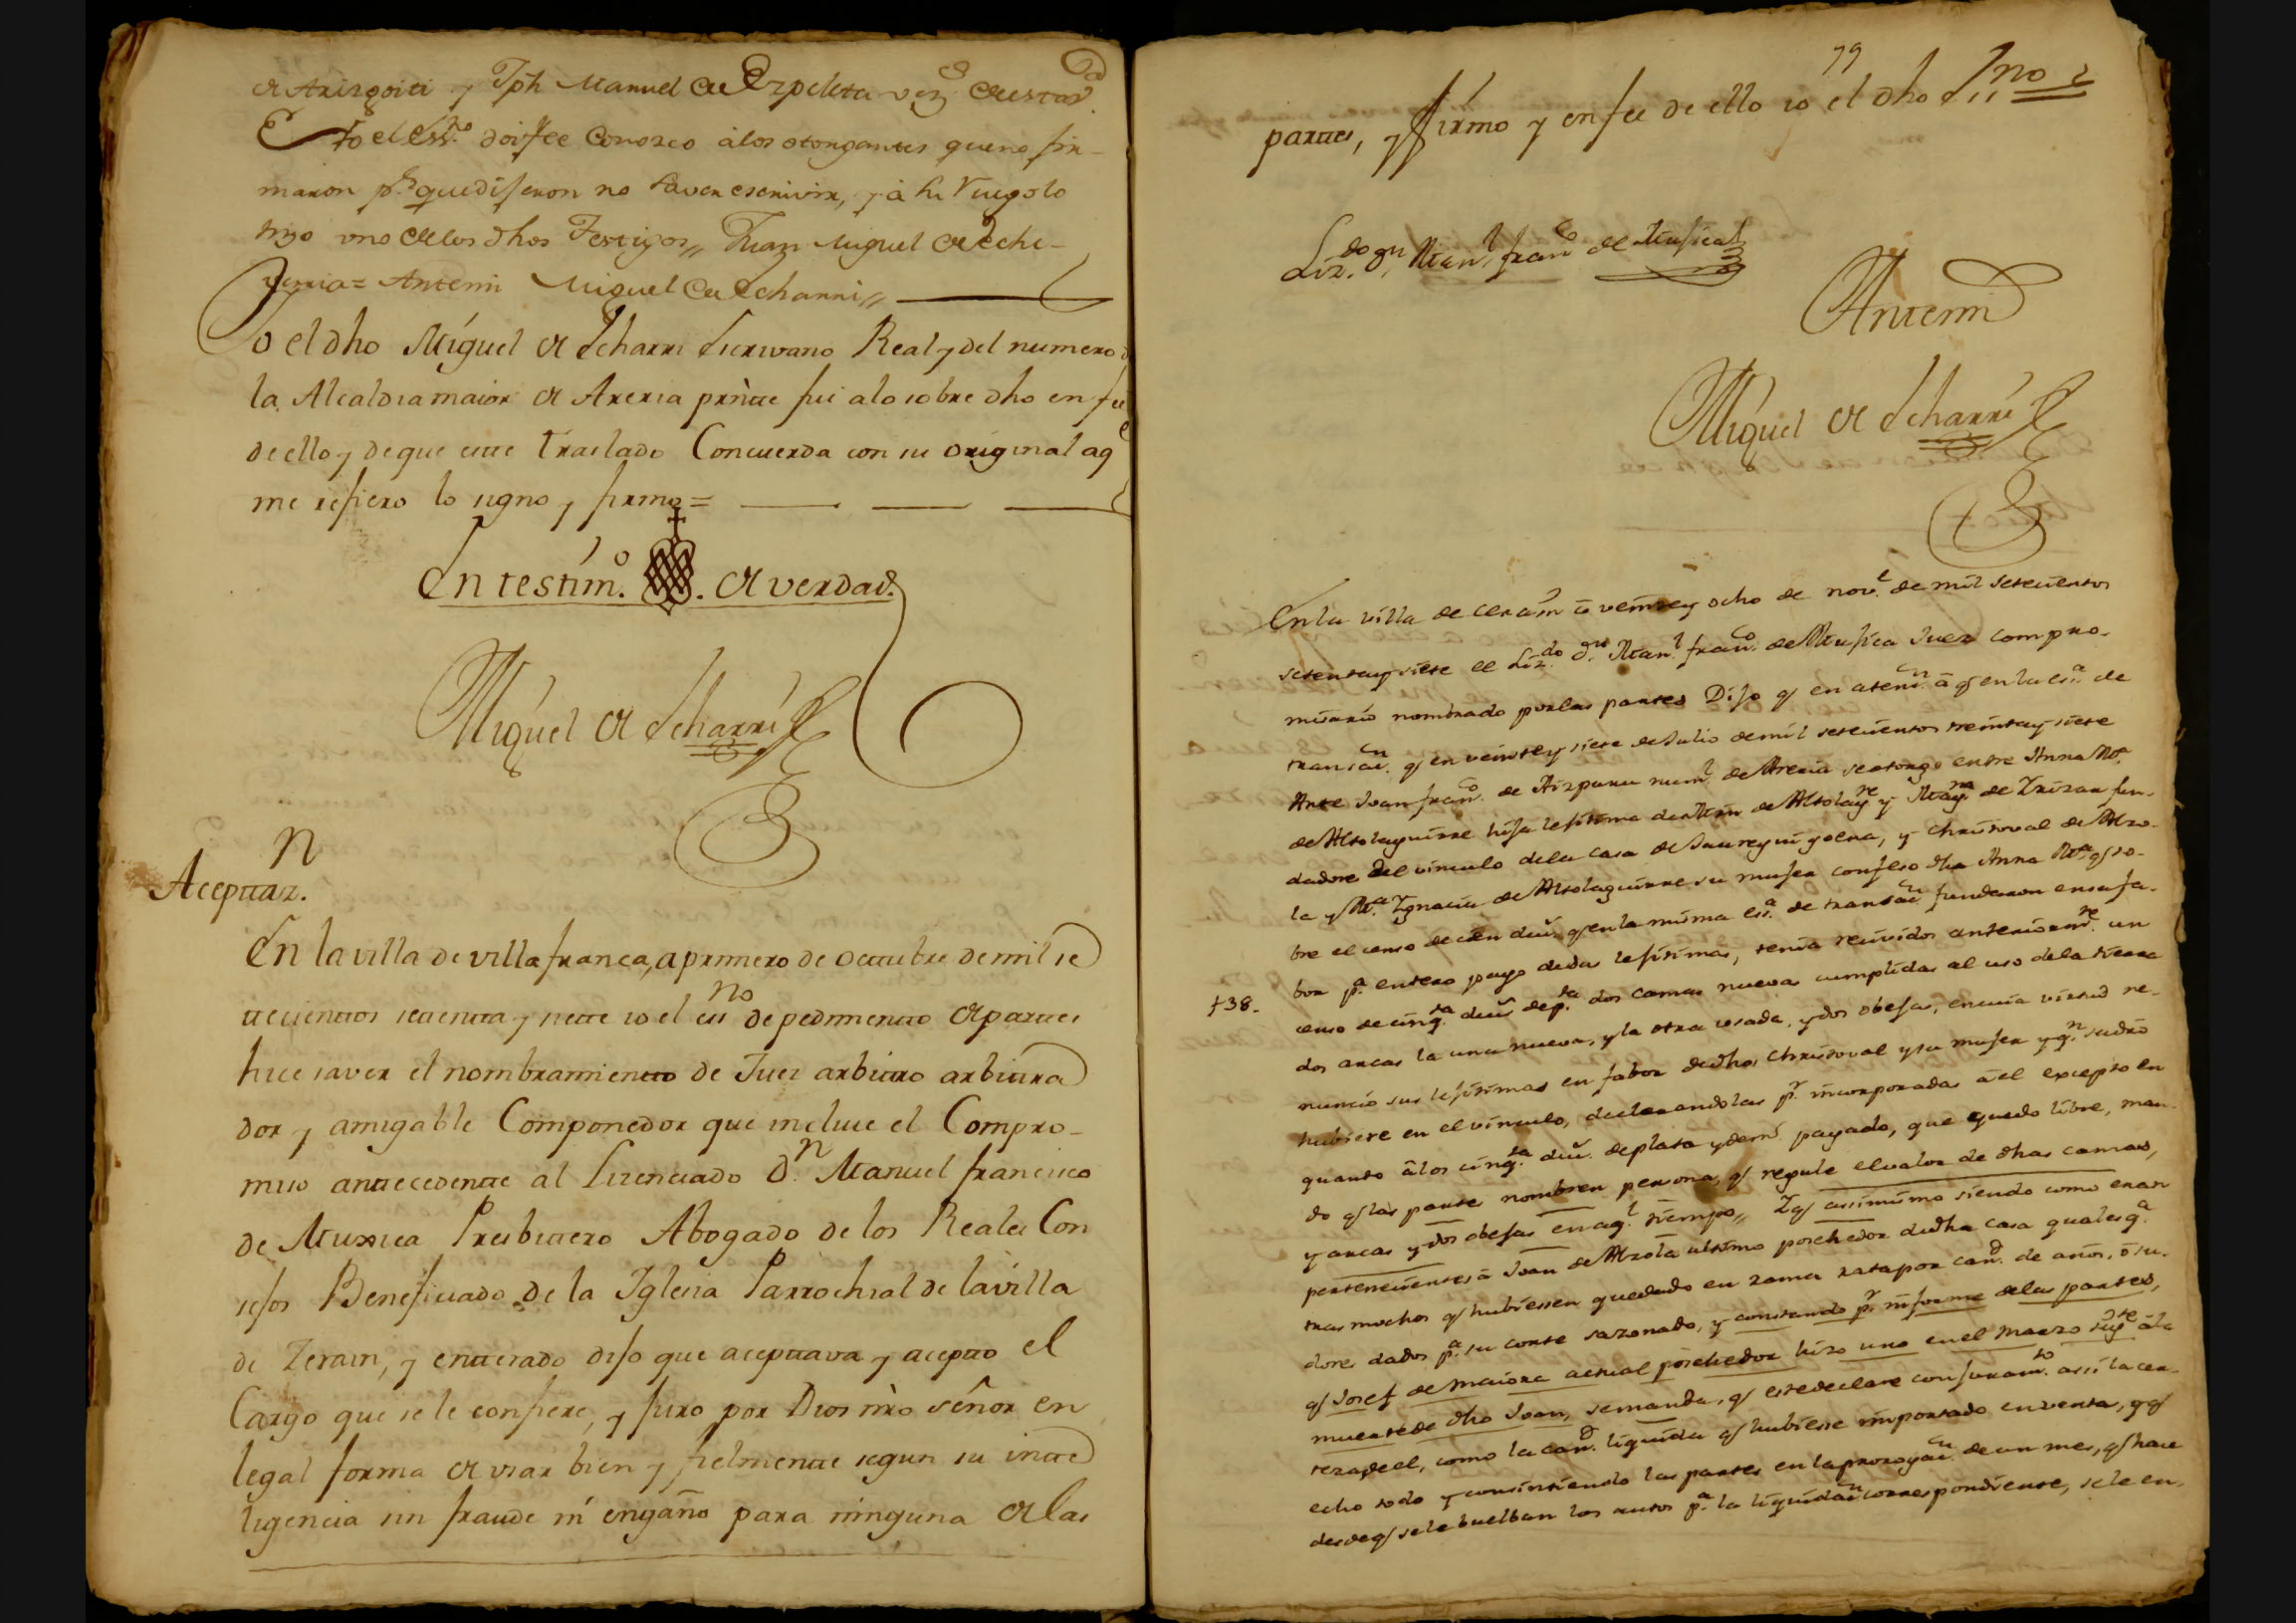 de Arizgoiti y Jph Manuel de Ezpeleta vez.s de esta v.d
Yo el Ess.no doi fee conozco à los otorgantes que no fir-
maron p.r que dijeron no saver escrivir, y à su ruego lo
hizo uno de los dhos Testigos,, Juan Miguel de Eche-
verria = Antemi Miguel de Echarri,,
Yo el dho Miguel de Echarri Escrivano Real y del numero d
la Alcaldia maior de Areria prnte fui alo sobre dho en fee
de ello y de que este traslado Concuerda con su original aq.e
me refiero lo signo y firmo =
En testim.o . de verdad.
Miguel de Echarri
Aceptaz.n
En la villa de villafranca, a primero de octtubre de mil se
ttecienttos settentta y siette io el ess.no de pedimentto de partes
hice saver el nombramientto de Juez arbittro arbittra
dor y amigable Componedor que incluie el Compro-
miso anttecedentte al Lizenciado D.n Manuel francisco
de Muxica Presbittero Abogado de los Reales Con
sejos Beneficiado de la Iglesia Parrochial de la villa
de Zerain, y entterado dijo que acepttava y aceptto el
Cargo que se le confiere, y juro por Dios nrò señor en
legal forma de usar bien y fielmentte segun su intte
ligencia sin fraude ni engaño para ninguna de las
79
parttes, y firmo y en fee de ello io el dho Ess.no
Liz.do d.n Man.l fran.co de Mujica
Antemi
Miguel de Echarri
En la villa de cerain à veinte y ocho de nov.e de mil setecientos
setenta y siete el Liz.do d.n Man.l fran.co de Mujica Juez compro-
misario nombrado por las partes Dijo q en aten.n à q en la ess.a de
transac.n q en veinte y siete de Julio de mil setecientos treinta y siete
Ante Juan fran.co de Aizpuru num.l de Areria se otorgo entre Anna M.a
de Altolaguirre hija lejitima de Mrn de Altolag.re y May.na de Irizar fun-
dadores del vinculo de la casa de Jaureguigoena, y christoval de Alzo-
la y M.a Ignacia de Altolaguirre su mujer confeso dha Anna M.a q so-
bre el censo de cien duc.s q en la misma ess.a de transac.n fundaron en su fa-
bor p.a entero pago de dhas lejitimas, tenia recividos anteriorm.te un
+38.
censo de cinq.ta duc.s de p.ta dos camas nuevas cumplidas al uso de la tierra
dos arcas la una nueva, y la otra usada, y dos obejas, en cuia virtud re-
nuncio sus lejitimas en fabor de dhos christoval y su mujer y q.n su dro
hubiere en el vinculo, declarandolas p.r incorporadas à el excepto en
quanto à los cinq.ta duc.s de plata y demas pagado, que quedo libre, man-
do q las partes nombren persona, q regule el valor de dhas camas,
y arcas y dos obejas en aq.l tiempo,, Y q assimismo siendo como eran
pertenecientes à Juan de Alzola ultimo posehedor de dha casa qualesq.a
tras mochos q hubiessen quedado en rama rata por can.d de años, ò su-
dores dados p.a su corte sazonado, y constando p.r informe de las partes,
q Josef de Maiora actual posehedor hizo uno en el Marzo sig.te à la
muerte de dho Juan, se manda, q este declare con juram.to assi la cer-
teza de el, como la can.d liquida q hubiesse importado en venta, y q
echo todo y consintiendo las partes en la prorogac.n de un mes, q hace
desde q se le buelban los autos p.a la liquidac.n correspondiente, se le en-